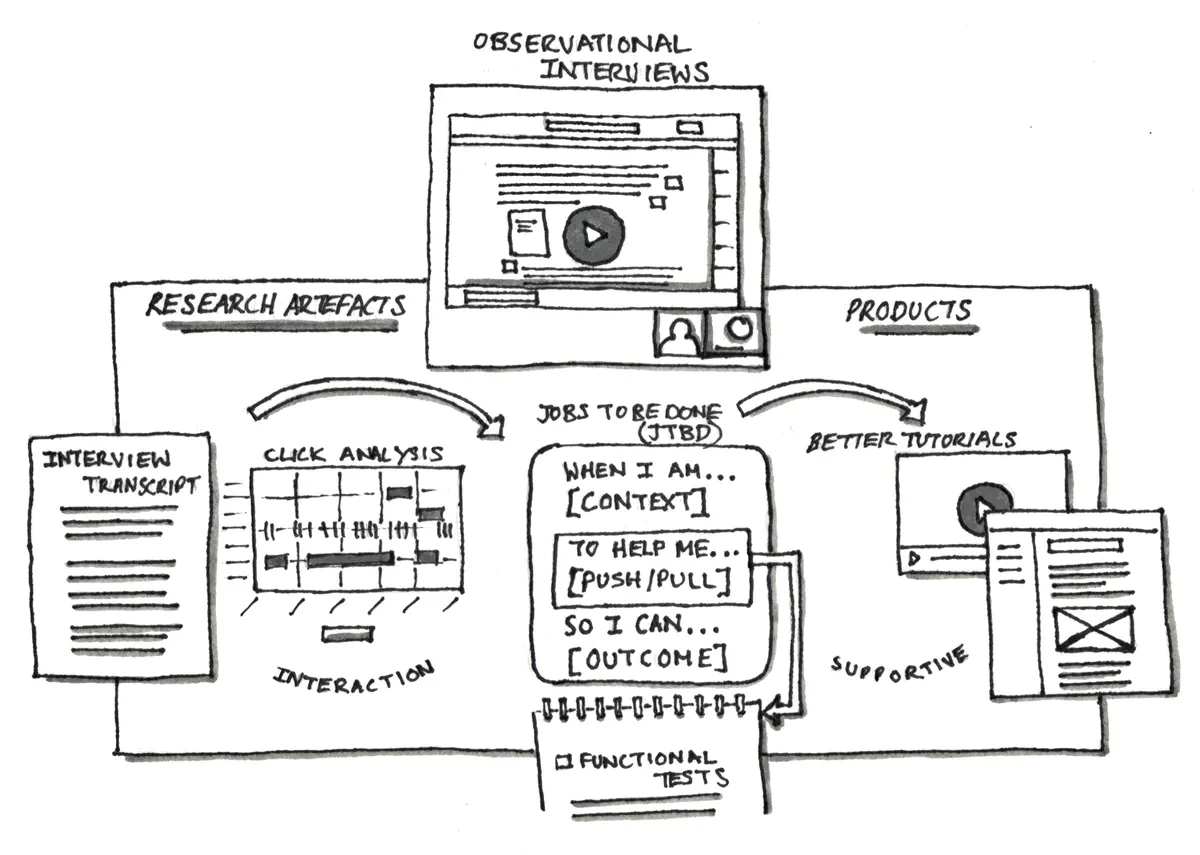 OBSERVATIONAL
INTERVIEWS
RESEARCH ARTEFACTS
PRODUCTS
INTERVIEW
TRANSCRIPT
CLICK ANALYSIS
INTERACTION
JOBS TO BE DONE
(JTBD)
WHEN I AM...
[CONTEXT]
TO HELP ME...
[PUSH/PULL]
SO I CAN...
[OUTCOME]
FUNCTIONAL
TESTS
BETTER TUTORIALS
SUPPORTIVE